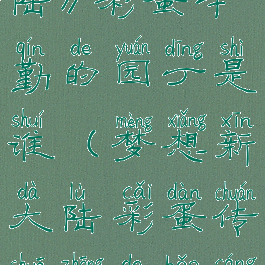 陆》彩蛋
qín de yuán dīng shì
勤的园丁是
shuí mèng xiǎng xīn
谁（梦想新
dà lù cǎi dàn chuán
大陆彩蛋传